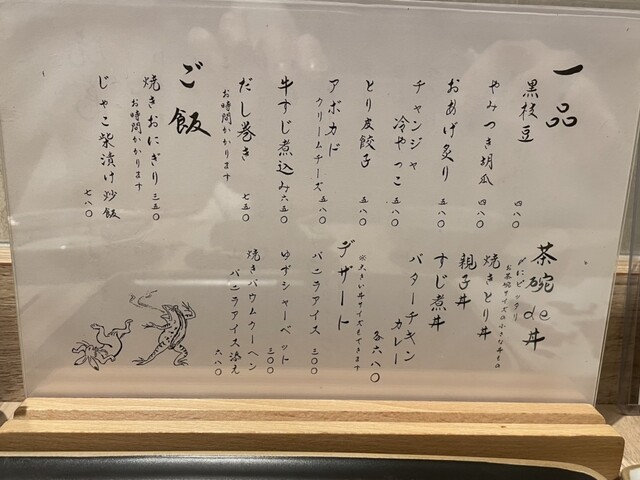 一品
黒枝豆 四八〇
やみつき胡瓜 四八〇
おあげ炙り 五八〇
チャンジャ
冷やっこ 五八〇
とり皮餃子 五八〇
アボカド
クリームチーズ 五八〇
牛すじ煮込み 六五〇
だし巻き 七五〇
お時間かかります
ご飯
焼きおにぎり 三五〇
お時間かかります
じゃこ柴漬け炒飯 七八〇
茶碗de丼
〆にピッタリ
お茶碗サイズの小さな丼もの
焼きとり丼
親子丼
すじ煮丼
バターチキン
カレー
各六八〇
※大きい丼サイズもできます
デザート
バニラアイス 三〇〇
ゆずシャーベット 三〇〇
焼きバウムクーヘン
バニラアイス添え 六八〇